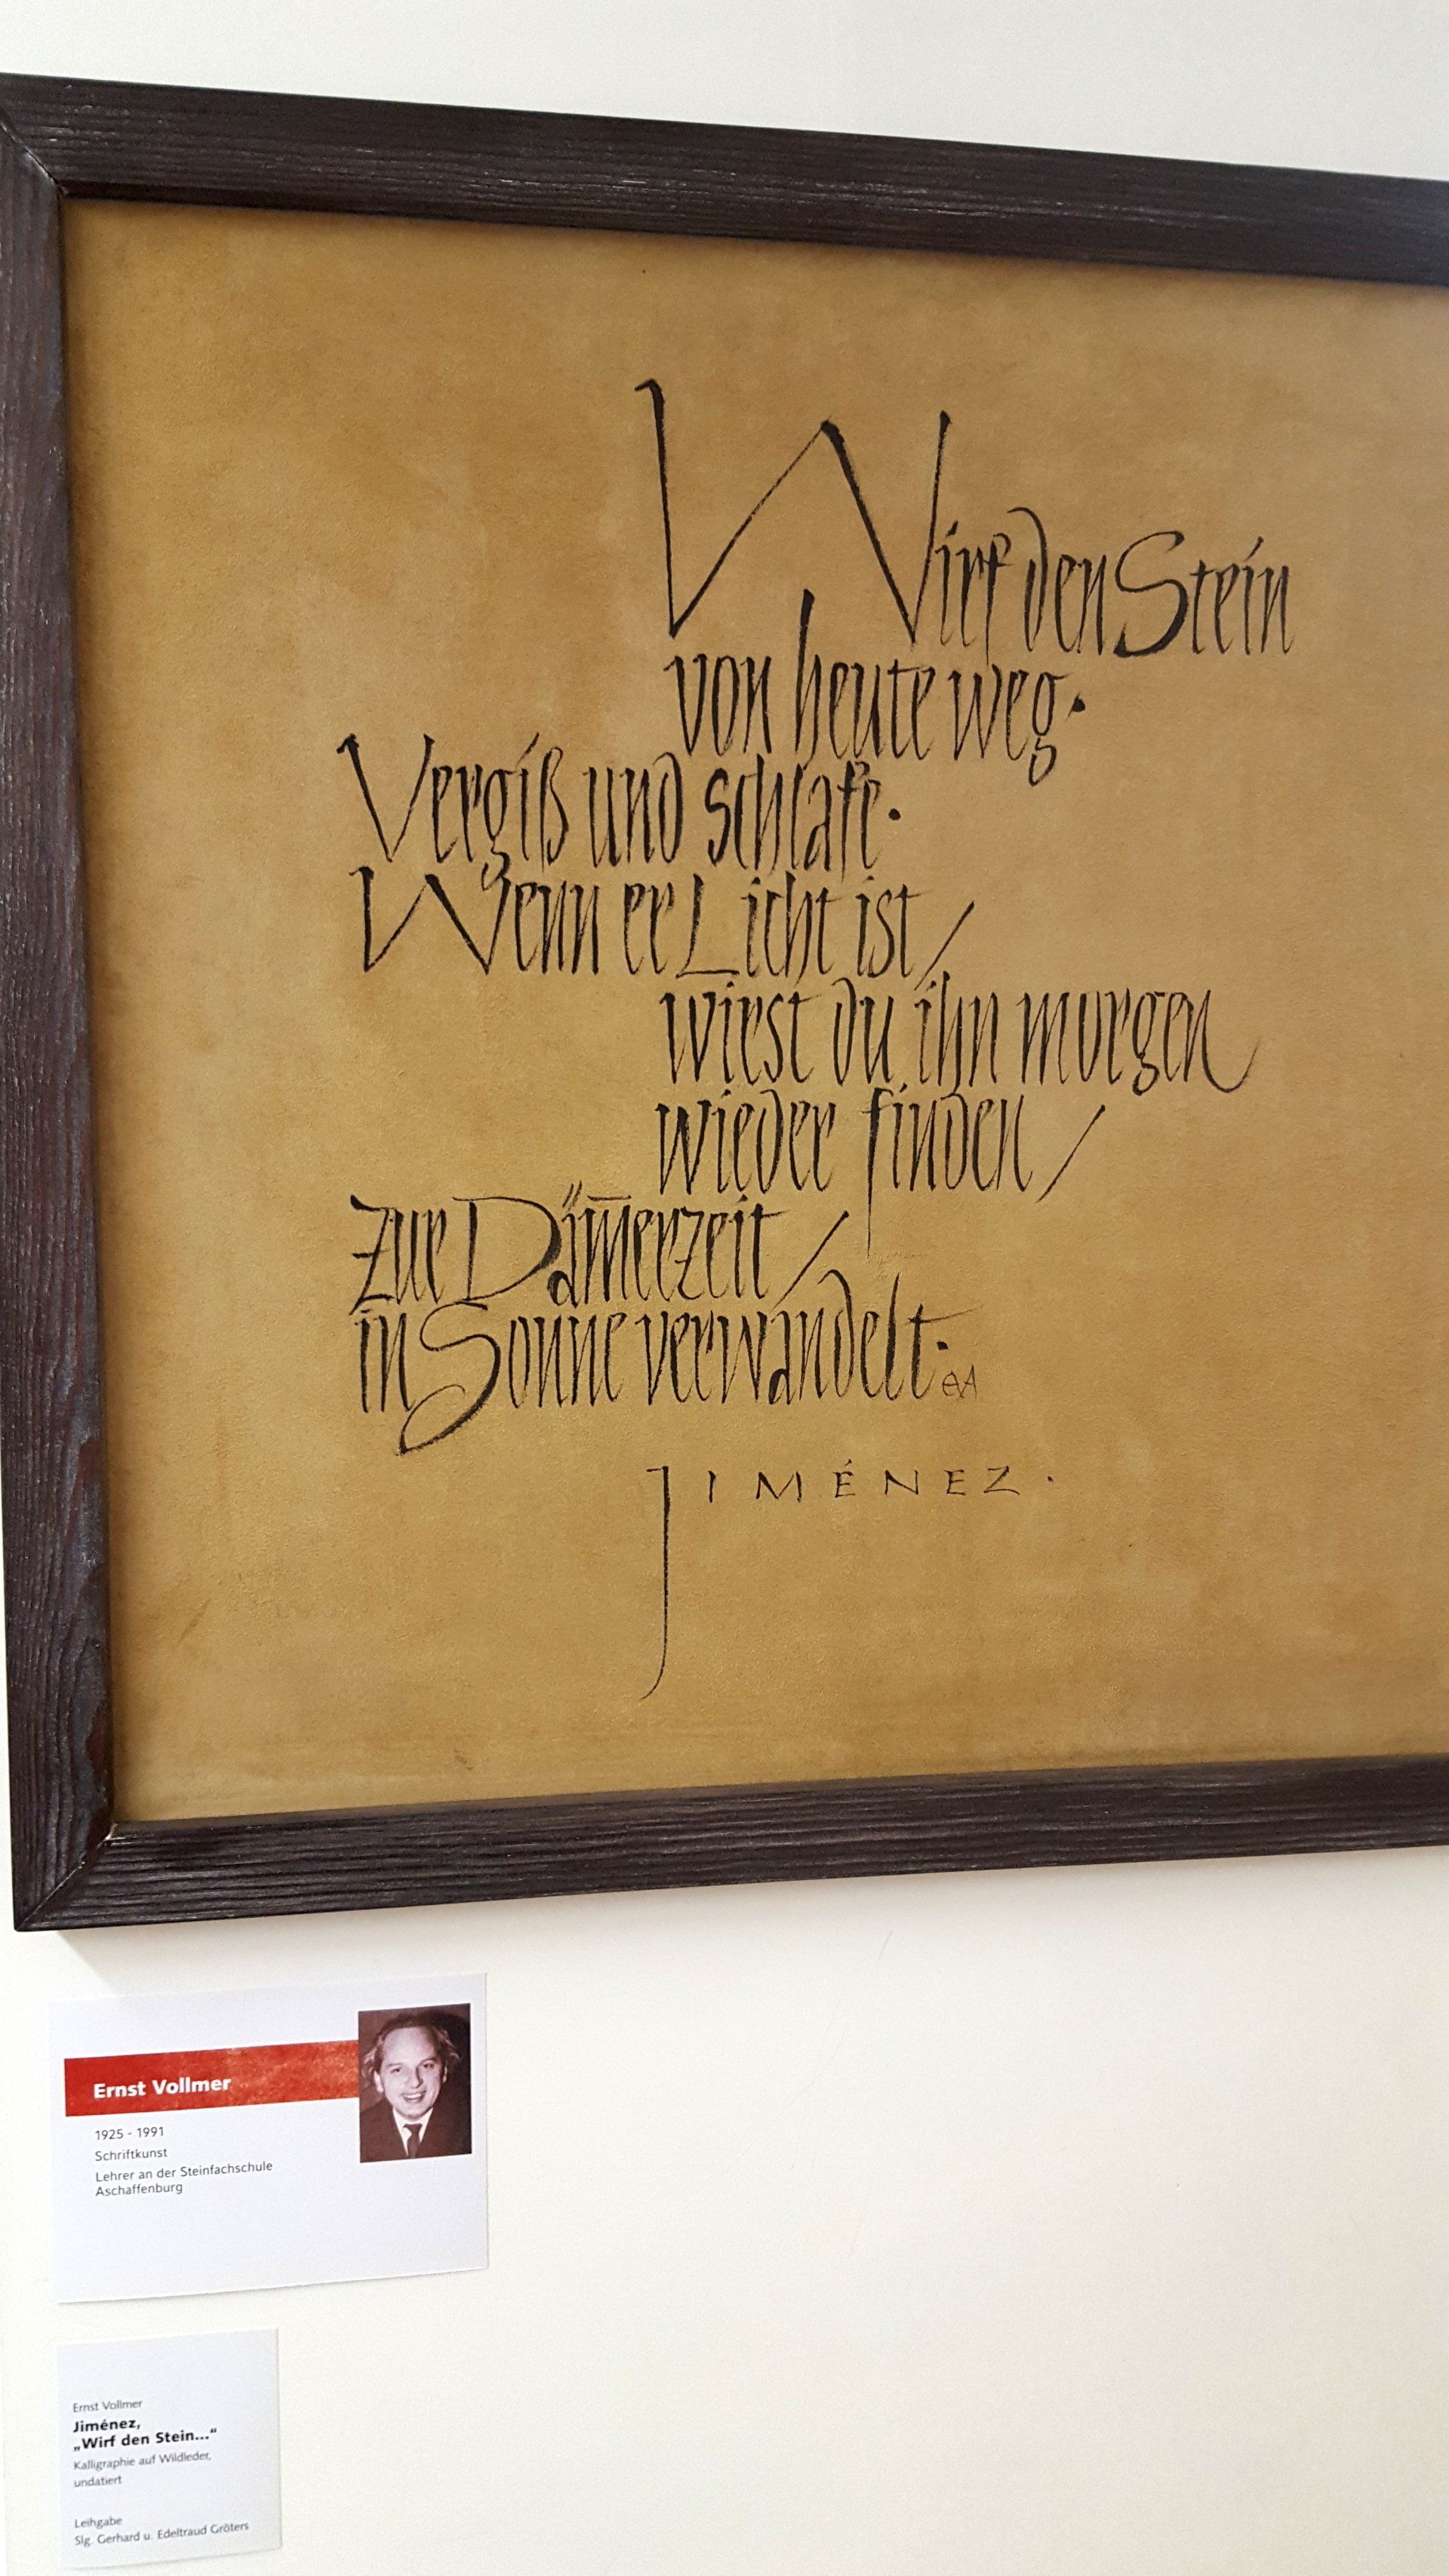 Wirf den Stein
von heute weg.
Vergiß und schlafe.
Wenn er Licht ist/
wirst du ihn morgen
wieder finden/
zur Däm̅erzeit/
in Sonne verwandelt.
JIMÉNEZ.
Ernst Vollmer
1925 - 1991
Schriftkunst
Lehrer an der Steinfachschule
Aschaffenburg
Ernst Vollmer
Jiménez,
„Wirf den Stein...“
Kalligraphie auf Wildleder,
undatiert
Leihgabe
Slg. Gerhard u. Edeltraud Gröters